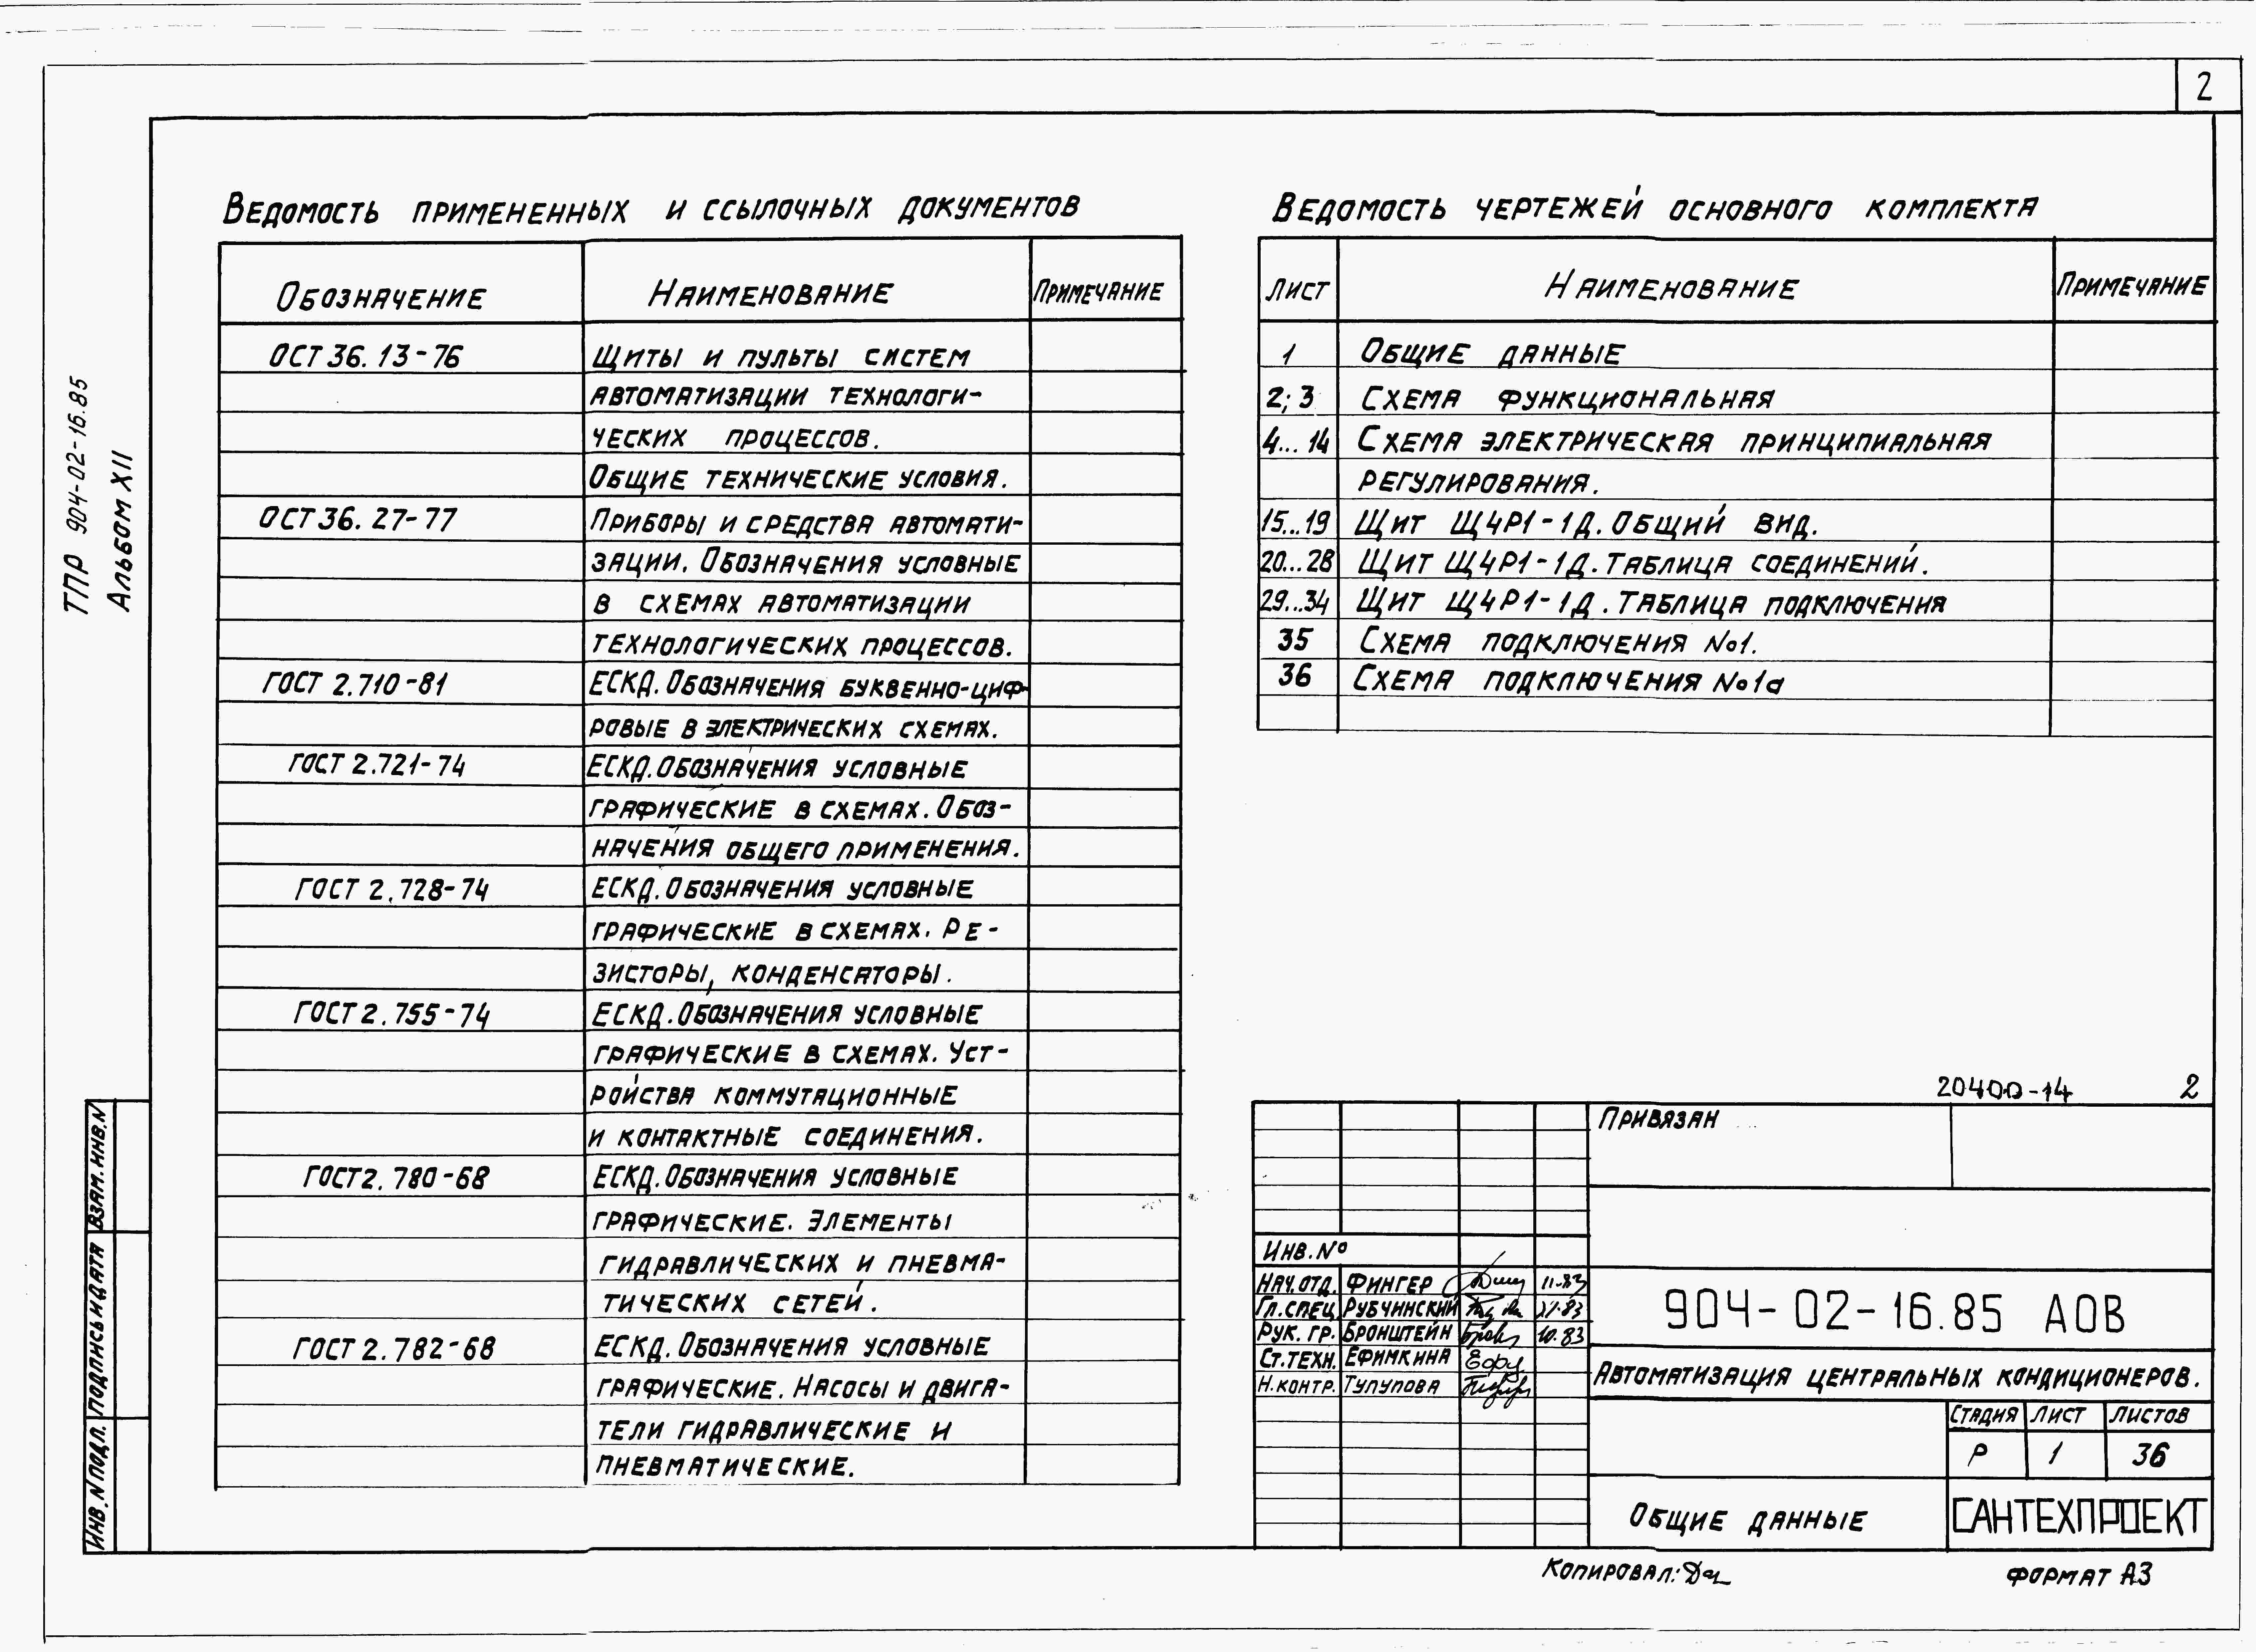 2
ТПР 904-02-16.85
Альбом XII
Ведомость примененных и ссылочных документов
Обозначение Наименование Примечание
ОСТ 36.13-76 Щиты и пульты систем
автоматизации технологи-
ческих процессов.
Общие технические условия.
ОСТ 36.27-77 Приборы и средства автомати-
зации. Обозначения условные
в схемах автоматизации
технологических процессов.
ГОСТ 2.710-81 ЕСКД. Обозначения буквенно-циф-
ровые в электрических схемах.
ГОСТ 2.721-74 ЕСКД. Обозначения условные
графические в схемах. Обоз-
начения общего применения.
ГОСТ 2.728-74 ЕСКД. Обозначения условные
графические в схемах. Ре-
зисторы, конденсаторы.
ГОСТ 2.755-74 ЕСКД. Обозначения условные
графические в схемах. Уст-
ройства коммутационные
и контактные соединения.
ГОСТ 2.780-68 ЕСКД. Обозначения условные
графические. Элементы
гидравлических и пневма-
тических сетей.
ГОСТ 2.782-68 ЕСКД. Обозначения условные
графические. Насосы и двига-
тели гидравлические и
пневматические.
Ведомость чертежей основного комплекта
Лист Наименование Примечание
1 Общие данные
2; 3 Схема функциональная
4...14 Схема электрическая принципиальная
регулирования.
15...19 Щит Щ4Р1-1Д. Общий вид.
20...28 Щит Щ4Р1-1Д. Таблица соединений.
29...34 Щит Щ4Р1-1Д. Таблица подключения
35 Схема подключения №1.
36 Схема подключения №1а
20400-14 2
Привязан
Инв. №
Нач. отд. Фингер 11-83
Гл. спец. Рубчинский XI-83
Рук. гр. Бронштейн 10.83
Ст. техн. Ефимкина
Н. контр. Тулупова
904-02-16.85 АОВ
Автоматизация центральных кондиционеров.
Стадия Лист Листов
Р 1 36
Общие данные
САНТЕХПРОЕКТ
Копировал:
Формат А3
Взам. инв. N
Подпись и дата
Инв. N подл.